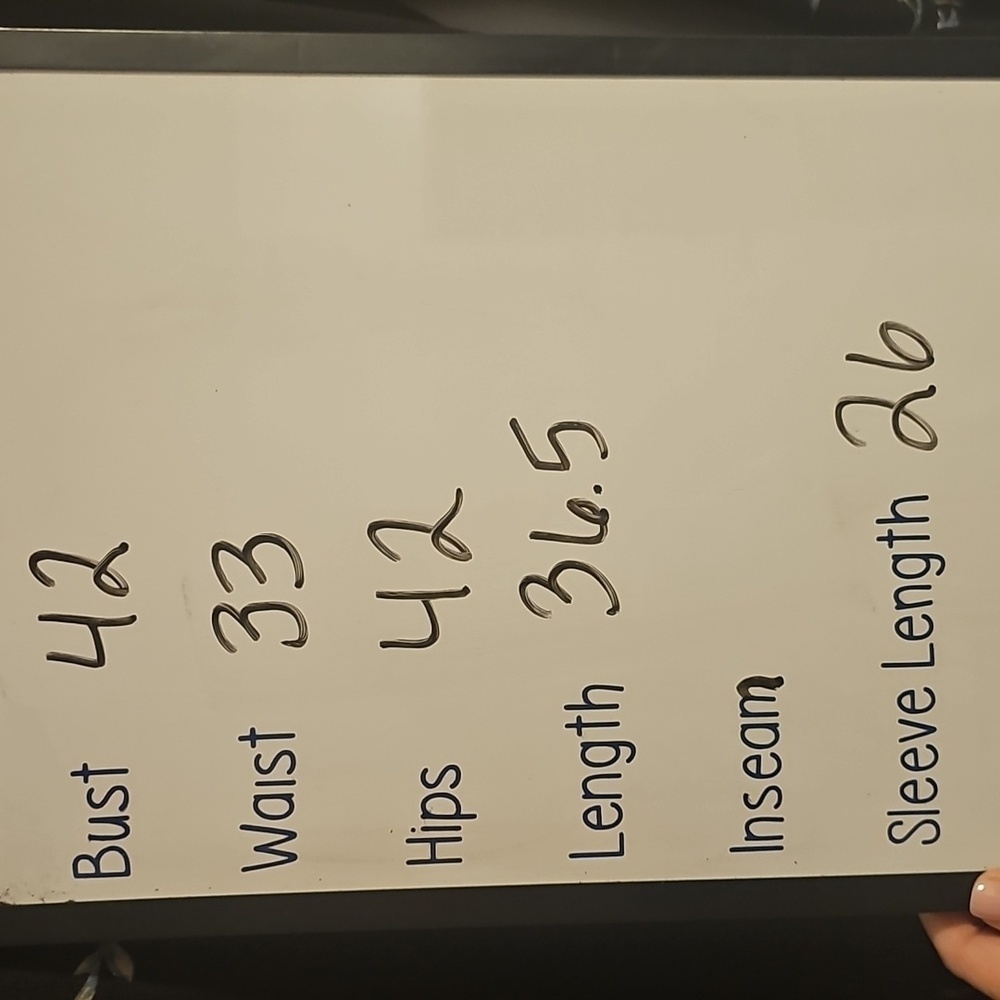 Bust 42
Waist 33
Hips 42
Length 36.5
Inseam
Sleeve Length 26